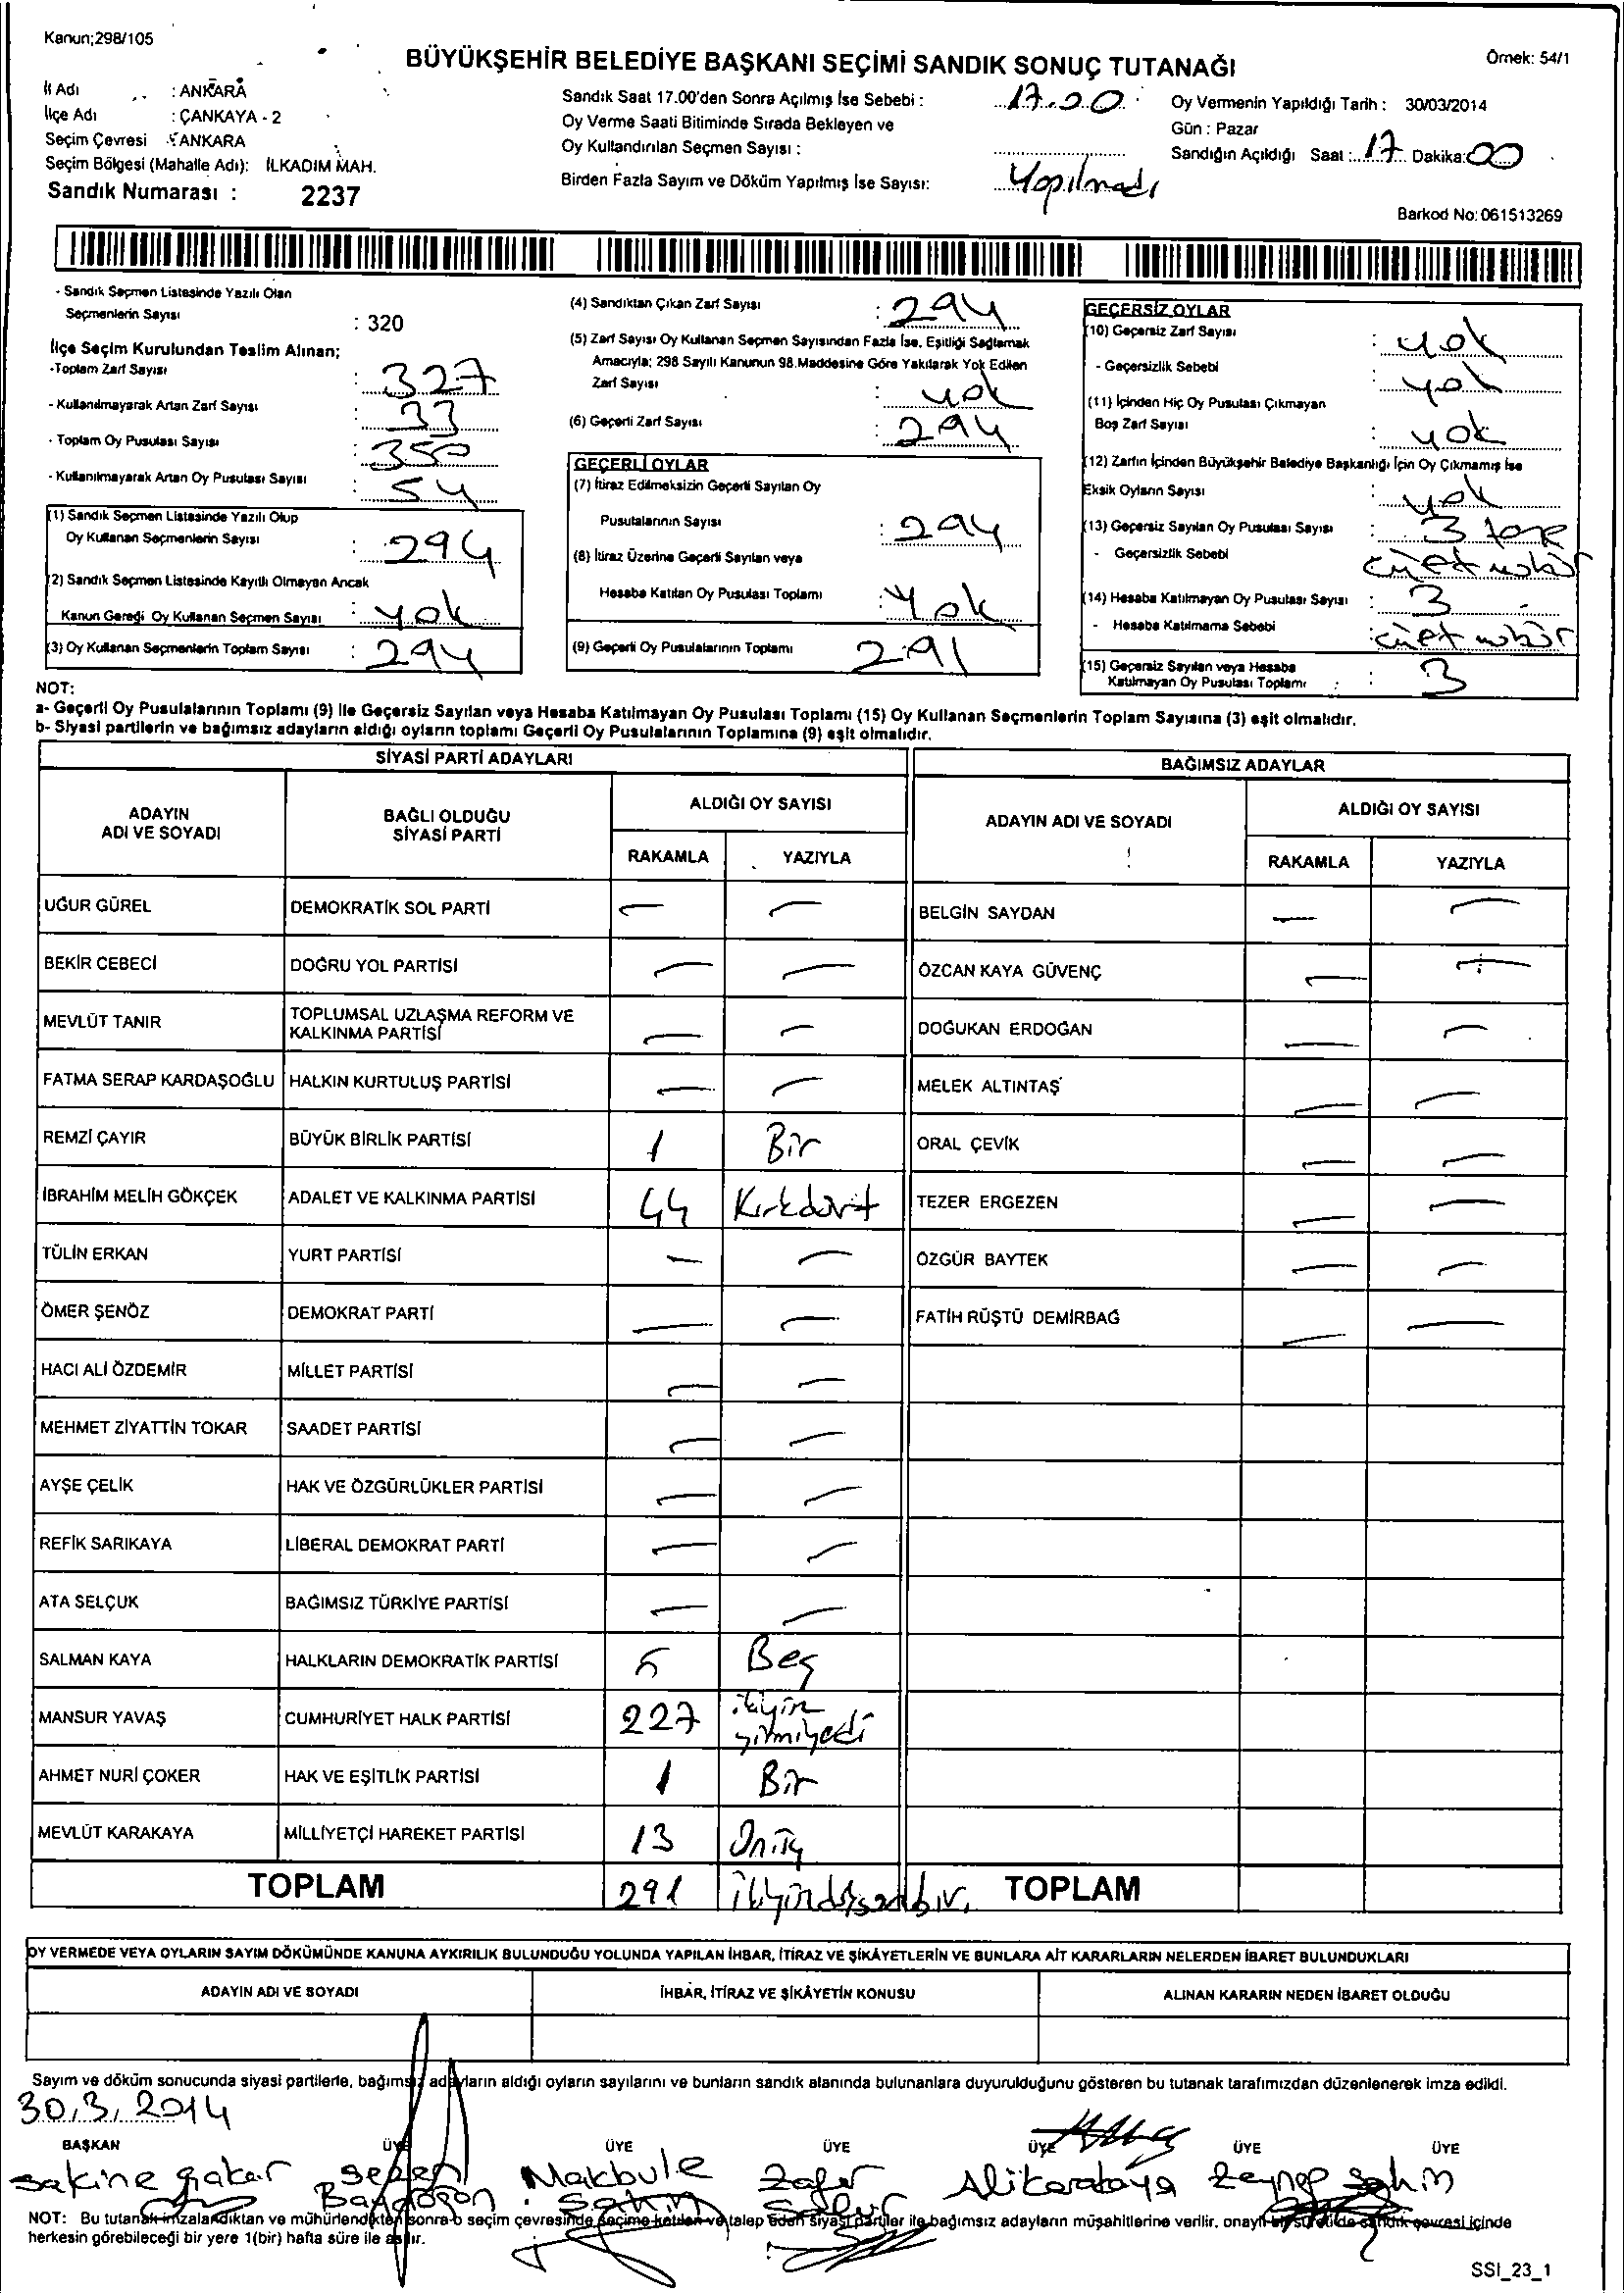 Kanun;298/105
BÜYÜKŞEHİR BELEDİYE BAŞKANI SEÇİMİ SANDIK SONUÇ TUTANAĞI
Örnek: 54/1
İl Adı : ANKARA
İlçe Adı : ÇANKAYA - 2
Seçim Çevresi : ANKARA
Seçim Bölgesi (Mahalle Adı): İLKADIM MAH.
Sandık Numarası : 2237
Sandık Saat 17.00'den Sonra Açılmış İse Sebebi : 17.00
Oy Verme Saati Bitiminde Sırada Bekleyen ve
Oy Kullandırılan Seçmen Sayısı :
Birden Fazla Sayım ve Döküm Yapılmış İse Sayısı: Yapılmadı
Oy Vermenin Yapıldığı Tarih : 30/03/2014
Gün : Pazar
Sandığın Açıldığı Saat : 17 Dakika: 00
Barkod No: 061513269
- Sandık Seçmen Listesinde Yazılı Olan
Seçmenlerin Sayısı : 320
İlçe Seçim Kurulundan Teslim Alınan;
-Toplam Zarf Sayısı : 327
- Kullanılmayarak Artan Zarf Sayısı : 33
- Toplam Oy Pusulası Sayısı : 350
- Kullanılmayarak Artan Oy Pusulası Sayısı : 54
(1) Sandık Seçmen Listesinde Yazılı Olup
Oy Kullanan Seçmenlerin Sayısı : 294
(2) Sandık Seçmen Listesinde Kayıtlı Olmayan Ancak
Kanun Gereği Oy Kullanan Seçmen Sayısı : yok
(3) Oy Kullanan Seçmenlerin Toplam Sayısı : 294
(4) Sandıktan Çıkan Zarf Sayısı : 294
(5) Zarf Sayısı Oy Kullanan Seçmen Sayısından Fazla İse, Eşitliği Sağlamak
Amacıyla; 298 Sayılı Kanunun 98.Maddesine Göre Yakılarak Yok Edilen
Zarf Sayısı : yok
(6) Geçerli Zarf Sayısı : 294
GEÇERLİ OYLAR
(7) İtiraz Edilmeksizin Geçerli Sayılan Oy
Pusulalarının Sayısı : 294
(8) İtiraz Üzerine Geçerli Sayılan veya
Hesaba Katılan Oy Pusulası Toplamı : Yok
(9) Geçerli Oy Pusulalarının Toplamı 291
GEÇERSİZ OYLAR
(10) Geçersiz Zarf Sayısı : yok
- Geçersizlik Sebebi : yok
(11) İçinden Hiç Oy Pusulası Çıkmayan
Boş Zarf Sayısı : yok
(12) Zarfın İçinden Büyükşehir Belediye Başkanlığı İçin Oy Çıkmamış İse
Eksik Oyların Sayısı : yok
(13) Geçersiz Sayılan Oy Pusulası Sayısı : 3 tane
- Geçersizlik Sebebi
(14) Hesaba Katılmayan Oy Pusulası Sayısı : 3
- Hesaba Katılmama Sebebi :
(15) Geçersiz Sayılan veya Hesaba
Katılmayan Oy Pusulası Toplamı : 3
NOT:
a- Geçerli Oy Pusulalarının Toplamı (9) ile Geçersiz Sayılan veya Hesaba Katılmayan Oy Pusulası Toplamı (15) Oy Kullanan Seçmenlerin Toplam Sayısına (3) eşit olmalıdır.
b- Siyasi partilerin ve bağımsız adayların aldığı oyların toplamı Geçerli Oy Pusulalarının Toplamına (9) eşit olmalıdır.
SİYASİ PARTİ ADAYLARI
ADAYIN ADI VE SOYADI BAĞLI OLDUĞU SİYASİ PARTİ ALDIĞI OY SAYISI
RAKAMLA YAZIYLA
UĞUR GÜREL DEMOKRATİK SOL PARTİ — —
BEKİR CEBECİ DOĞRU YOL PARTİSİ — —
MEVLÜT TANIR TOPLUMSAL UZLAŞMA REFORM VE KALKINMA PARTİSİ — —
FATMA SERAP KARDAŞOĞLU HALKIN KURTULUŞ PARTİSİ — —
REMZİ ÇAYIR BÜYÜK BİRLİK PARTİSİ 1 Bir
İBRAHİM MELİH GÖKÇEK ADALET VE KALKINMA PARTİSİ 44 Kırkdört
TÜLİN ERKAN YURT PARTİSİ — —
ÖMER ŞENÖZ DEMOKRAT PARTİ — —
HACI ALİ ÖZDEMİR MİLLET PARTİSİ — —
MEHMET ZİYATTİN TOKAR SAADET PARTİSİ — —
AYŞE ÇELİK HAK VE ÖZGÜRLÜKLER PARTİSİ — —
REFİK SARIKAYA LİBERAL DEMOKRAT PARTİ — —
ATA SELÇUK BAĞIMSIZ TÜRKİYE PARTİSİ — —
SALMAN KAYA HALKLARIN DEMOKRATİK PARTİSİ 5 Beş
MANSUR YAVAŞ CUMHURİYET HALK PARTİSİ 227 ikiyüz yirmiyedi
AHMET NURİ ÇOKER HAK VE EŞİTLİK PARTİSİ 1 Bir
MEVLÜT KARAKAYA MİLLİYETÇİ HAREKET PARTİSİ 13 Onüç
TOPLAM 291 ikiyüzdoksanbir
BAĞIMSIZ ADAYLAR
ADAYIN ADI VE SOYADI ALDIĞI OY SAYISI
RAKAMLA YAZIYLA
BELGİN SAYDAN — —
ÖZCAN KAYA GÜVENÇ — —
DOĞUKAN ERDOĞAN — —
MELEK ALTINTAŞ — —
ORAL ÇEVİK — —
TEZER ERGEZEN — —
ÖZGÜR BAYTEK — —
FATİH RÜŞTÜ DEMİRBAĞ — —
TOPLAM
OY VERMEDE VEYA OYLARIN SAYIM DÖKÜMÜNDE KANUNA AYKIRILIK BULUNDUĞU YOLUNDA YAPILAN İHBAR, İTİRAZ VE ŞİKÂYETLERİN VE BUNLARA AİT KARARLARIN NELERDEN İBARET BULUNDUKLARI
ADAYIN ADI VE SOYADI İHBAR, İTİRAZ VE ŞİKÂYETİN KONUSU ALINAN KARARIN NEDEN İBARET OLDUĞU
Sayım ve döküm sonucunda siyasi partilerle, bağımsız adayların aldığı oyların sayılarını ve bunların sandık alanında bulunanlara duyurulduğunu gösteren bu tutanak tarafımızdan düzenlenerek imza edildi.
30.3.2014
BAŞKAN ÜYE ÜYE ÜYE ÜYE ÜYE ÜYE
Sakine Makbule Zafer Ali Karakaya Zeynep Şahin
Şahin
NOT: Bu tutanak imzalandıktan ve mühürlendikten sonra o seçim çevresinde seçime katılan ve talep eden siyasi partiler ile bağımsız adayların müşahitlerine verilir, onaylı bir sureti de sandık çevresi içinde
herkesin görebileceği bir yere 1(bir) hafta süre ile asılır.
SSI_23_1